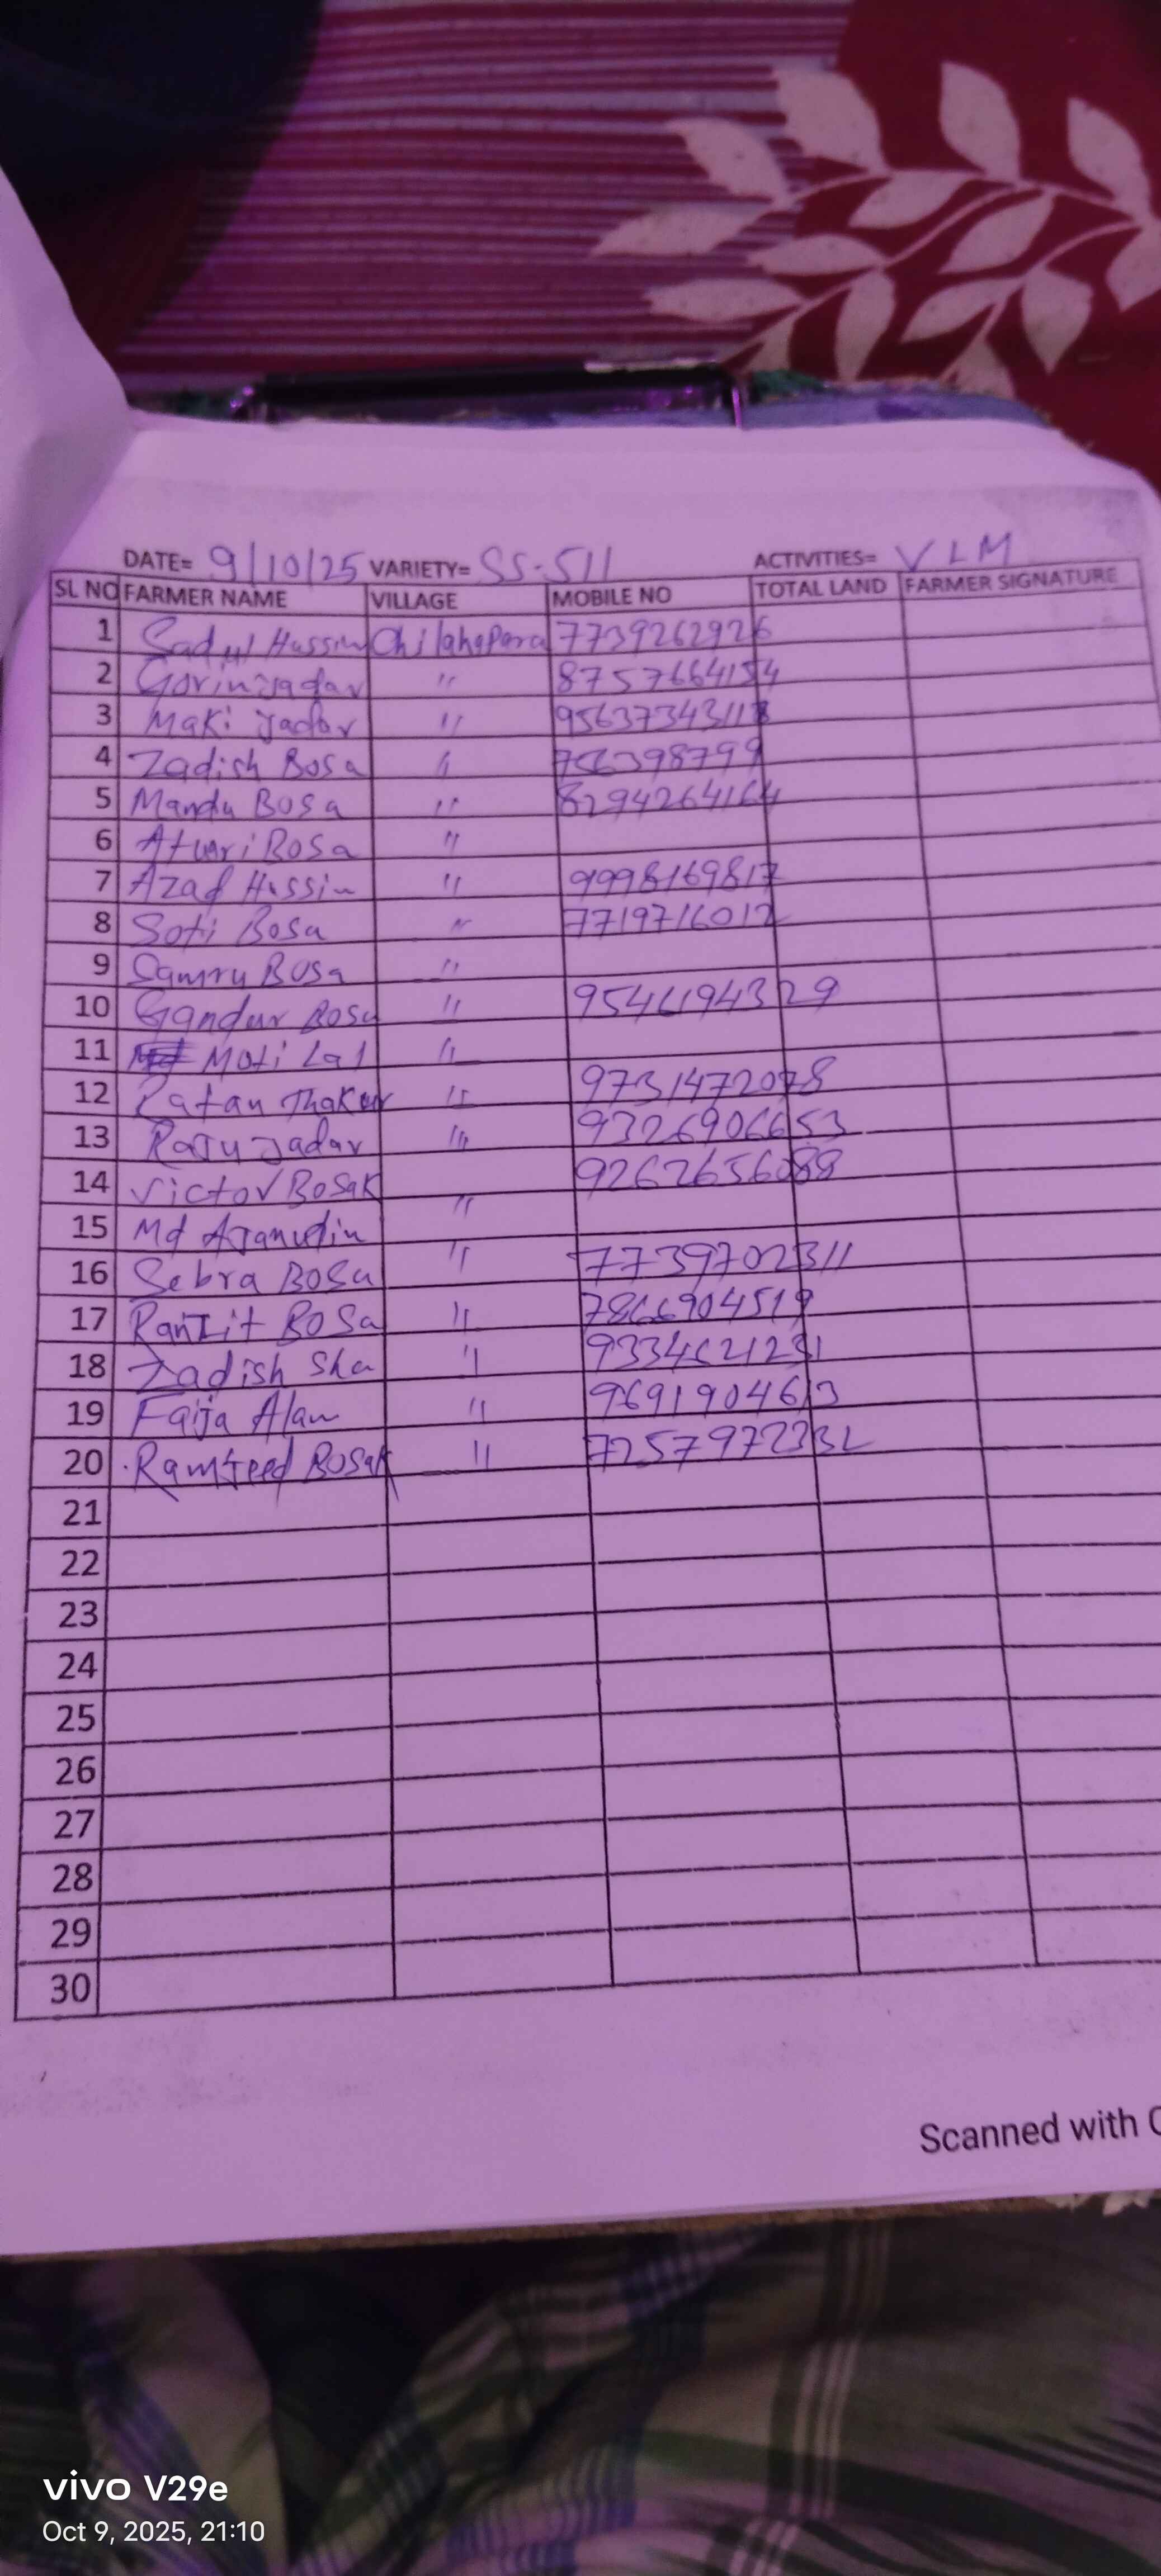 DATE= 9/10/25 VARIETY= SS-511 ACTIVITIES= VLM
SL NO FARMER NAME VILLAGE MOBILE NO TOTAL LAND FARMER SIGNATURE
1 Sadul Hussin Chilahapara 7739262926
2 " 8757664154
3 Maki Jadav " 9563734311
4 Zadish Bosa " 756398799
5 Mandu Bosa " 8294264164
6 Atwari Bosa "
7 Azad Hussin " 9998169817
8 Soti Bosa " 7719716012
9 Samru Bosa "
10 Gandur Bosa " 9546194329
11 Moti Lal "
12 Ratan Thakur " 9731472078
13 Raju Jadav " 9326906653
14 Victor Bosak " 9262656088
15 Md Ajamudin
16 Sebra Bosa " 7739702311
17 Ranzit Bosa " 7866904519
18 Zadish Sha " 9334621231
19 Faija Alam " 9691904613
20 Ramjeed Bosak " 7257972332
21
22
23
24
25
26
27
28
29
30
Scanned with C
vivo V29e
Oct 9, 2025, 21:10